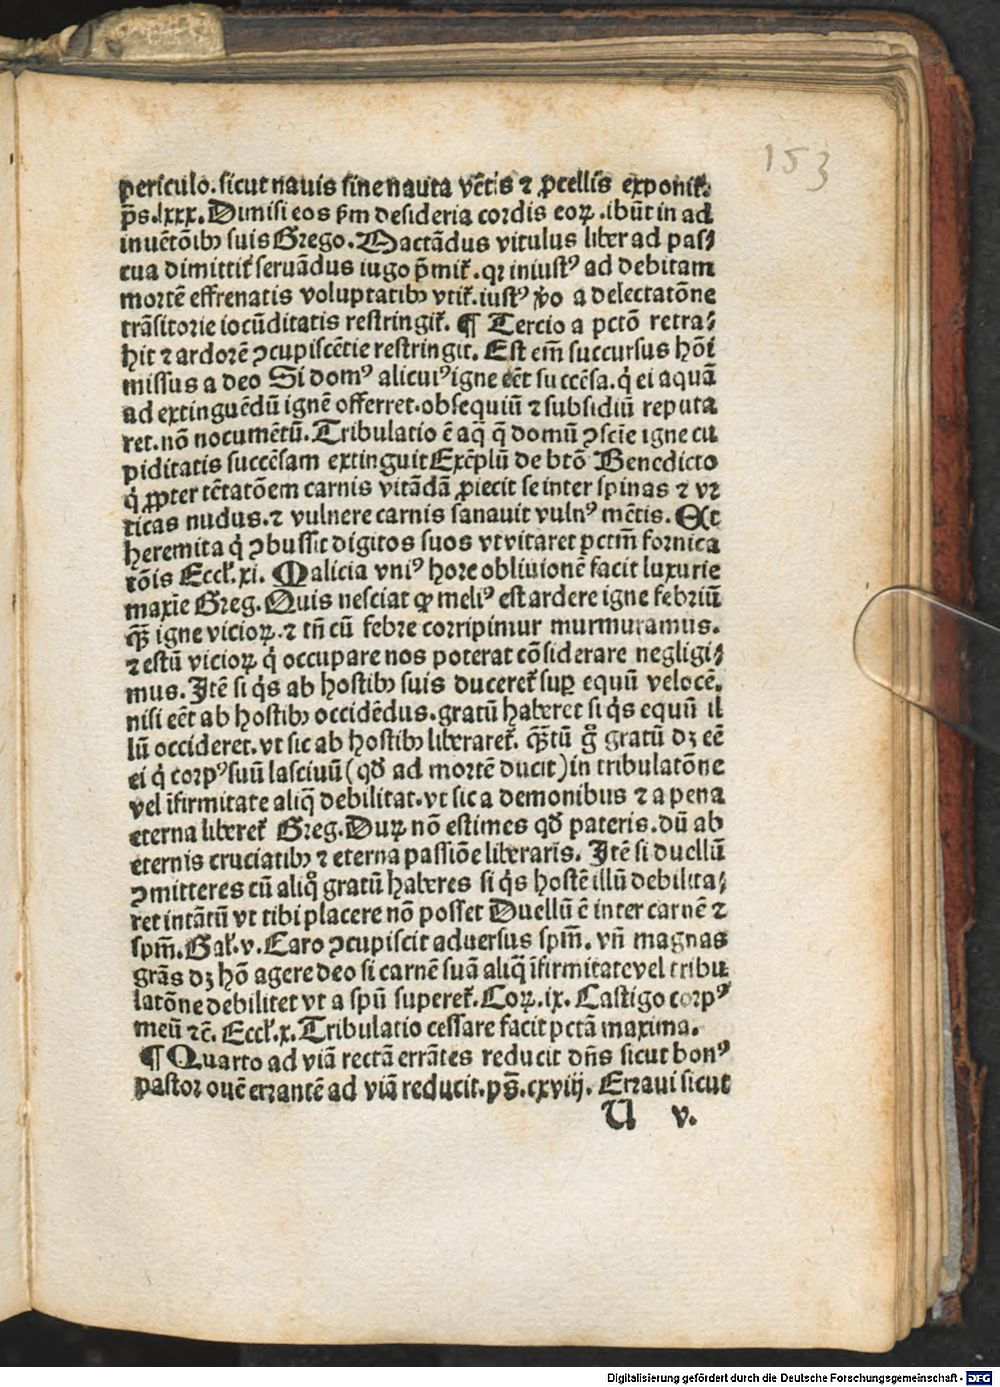 153
periculo.sicut nauis sine nauta vẽtis ⁊ ꝓcellis exponit᷑.
p̃s.lxxx.Dimisi eos ẜm desideria cordis eoꝝ.ibũt in ad
inuẽtõibꝫ suis Grego.Mactãdus vitulus liber ad pas⸗
cua dimittit᷑ seruãdus iugo p̃mit᷑.qꝛ iniustꝰ ad debitam
mortẽ effrenatis voluptatibꝫ vtit᷑.iustꝰ ỹo a delectatõne
trãsitorie iocũditatis restringit᷑. ¶ Tercio a pctõ retra⸗
hit ⁊ ardorẽ ꝯcupiscẽtie restringit. Est em̃ succursus hõi
missus a deo Si domꝰ alicuiꝰ igne eẽt succẽsa.q̇ ei aquã
ad extinguẽdũ ignẽ offerret.obsequiũ ⁊ subsidiũ reputa
ret.nõ nocumẽtũ.Tribulatio ẽ aq̃ q̃ domũ ꝯscĩe igne cu
piditatis succẽsam extinguit Exẽplũ de btõ Benedicto
q̇ ꝓpter tẽtatõem carnis vitãdã ꝓiecit se inter spinas ⁊ vꝛ
ticas nudus.⁊ vulnere carnis sanauit vulnꝰ mẽtis. Et
heremita q̇ ꝯbussit digitos suos vt vitaret pctm̃ fornica
tõis Eccl᷑.xi. Malicia vniꝰ hore obliuionẽ facit luxurie
maxĩe Greg.Quis nesciat ꝙ meliꝰ est ardere igne febriũ
q̃ꝫ igne vicioꝝ.⁊ tñ cũ febre corripimur murmuramus.
⁊ estũ vicioꝝ q̇ occupare nos poterat cõsiderare negligi⸗
mus.Itẽ si q̇s ab hostibꝫ suis duceret᷑ suꝑ equũ velocẽ.
nisi eẽt ab hostibꝫ occidẽdus.gratũ haberet si q̇s equũ il
lũ occideret.vt sic ab hostibꝫ liberaret᷑. q̃ꝫtũ g̊ gratũ dꝫ eẽ
ei q̇ corpꝰ suũ lasciuũ(qð ad mortẽ ducit)in tribulatõne
vel ĩfirmitate aliq̃ debilitat.vt sic a demonibus ⁊ a pena
eterna liberet᷑ Greg.Duꝝ nõ estimes qð pateris.dũ ab
eternis cruciatibꝫ ⁊ eterna passiõe liberaris. Itẽ si duellũ
ꝯmitteres cũ aliq̊ gratũ haberes si q̇s hostẽ illũ debilita⸗
ret intãtũ vt tibi placere nõ posset Duellũ ẽ inter carnẽ ⁊
spm̃.Gal᷑.v.Caro ꝯcupiscit aduersus spm̃. vñ magnas
grãs dꝫ hõ agere deo si carnẽ suã aliq̃ ĩfirmitate vel tribu
latõne debilitet vt a spũ superet᷑.Coꝝ.ix. Castigo corpꝰ
meũ ⁊c̃. Eccl᷑.x.Tribulatio cessare facit pctã maxima.
¶ Quarto ad viã rectã errãtes reducit dñs sicut bonꝰ
pastor ouẽ errantẽ ad viã reducit.ps̃.cxviij. Erraui sicut
U v.
Digitalisierung gefördert durch die Deutsche Forschungsgemeinschaft - DFG